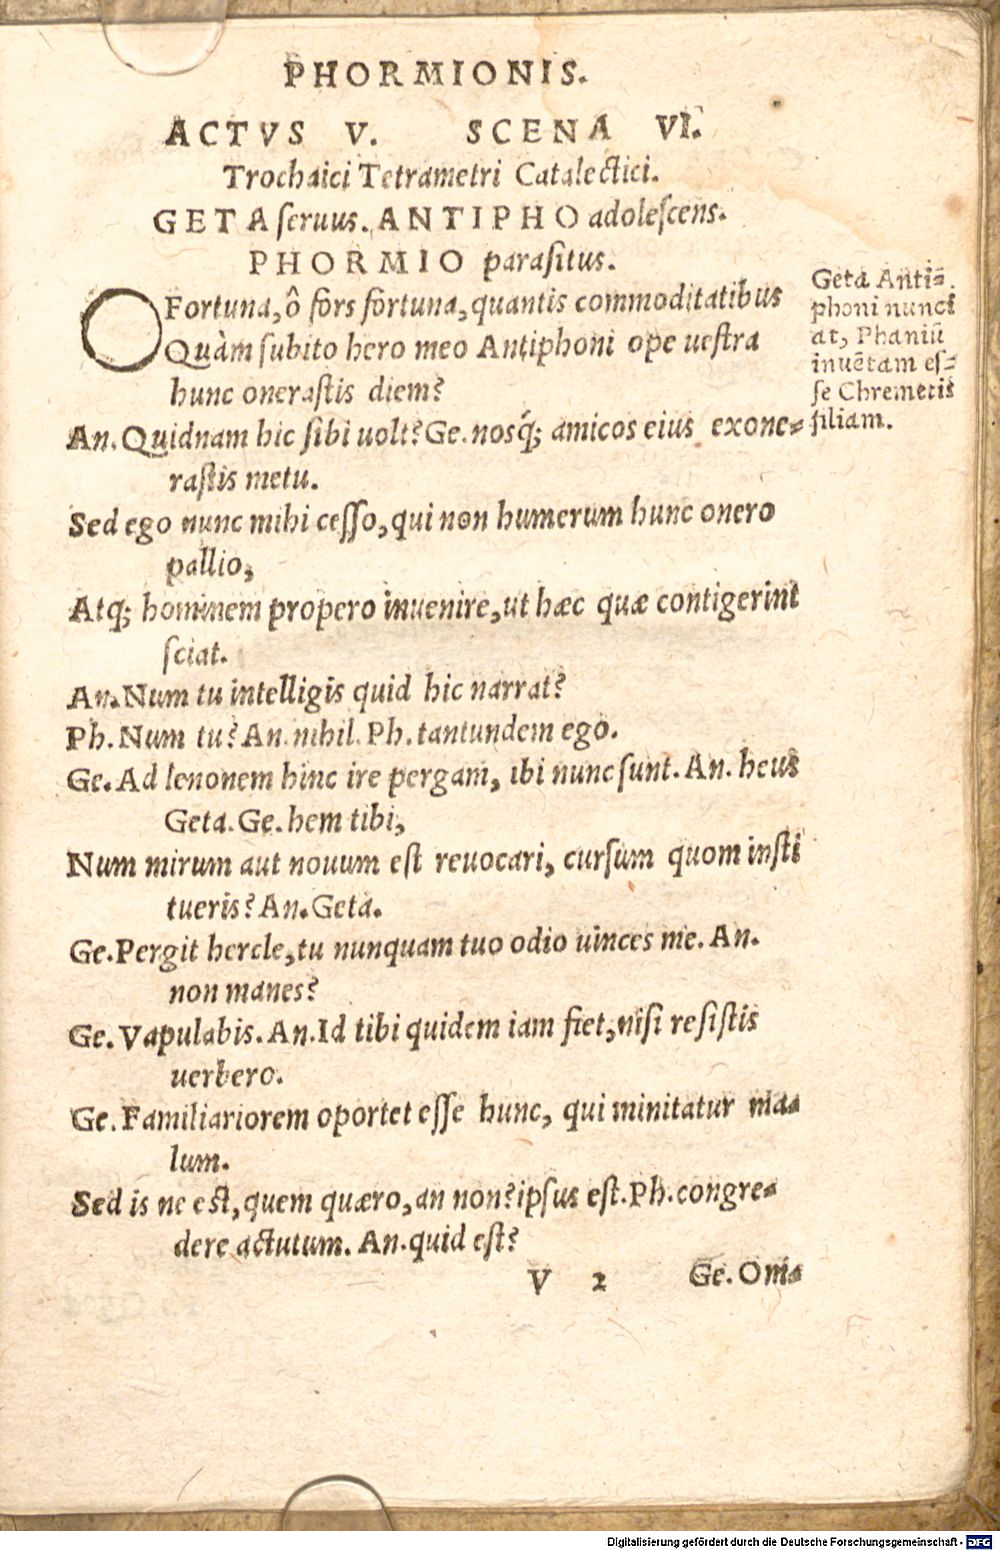 PHORMIONIS.
ACTVS V. SCENA VI.
Trochaici Tetrametri Catalectici.
GETA seruus. ANTIPHO adolescens.
PHORMIO parasitus.
O Fortuna, ô fors fortuna, quantis commoditatibus
Quàm subito hero meo Antiphoni ope uestra
hunc onerastis diem?
An. Quidnam hic sibi uolt? Ge. nosq́; amicos eius exone-
rastis metu.
Sed ego nunc mihi cesso, qui non humerum hunc onero
pallio,
Atq; hominem propero inuenire, ut hæc quæ contigerint
sciat.
An. Num tu intelligis quid hic narrat?
Ph. Num tu? An. nihil. Ph. tantundem ego.
Ge. Ad lenonem hinc ire pergam, ibi nunc sunt. An. heus
Geta. Ge. hem tibi,
Num mirum aut nouum est reuocari, cursum quom insti
tueris? An. Geta.
Ge. Pergit hercle, tu nunquam tuo odio uinces me. An.
non manes?
Ge. Vapulabis. An. Id tibi quidem iam fiet, nisi resistis
uerbero.
Ge. Familiariorem oportet esse hunc, qui minitatur ma-
lum.
Sed is ne est, quem quæro, an non? ipsus est. Ph. congre-
dere actutum. An. quid est?
V 2 Ge. Om-
Geta Anti-
phoni nunci
at, Phaniū
inuētam es-
se Chremetis
filiam.
Digitalisierung gefördert durch die Deutsche Forschungsgemeinschaft - DFG